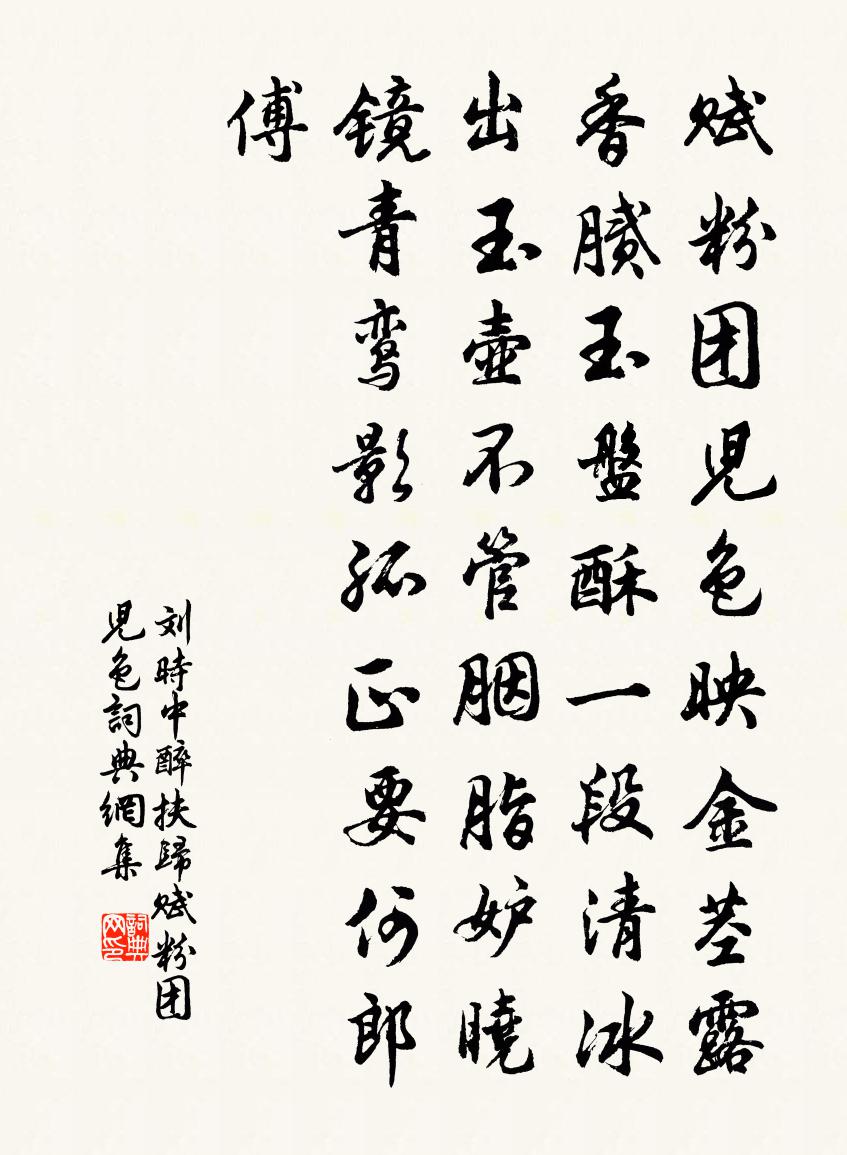 赋粉团児色映金茎露
香腻玉盘酥一段清冰
出玉壶不管胭脂妒晓
镜青鸾影孤正要何郎
傅
刘時中醉扶歸赋粉团
児色詞典網集
詞典網印